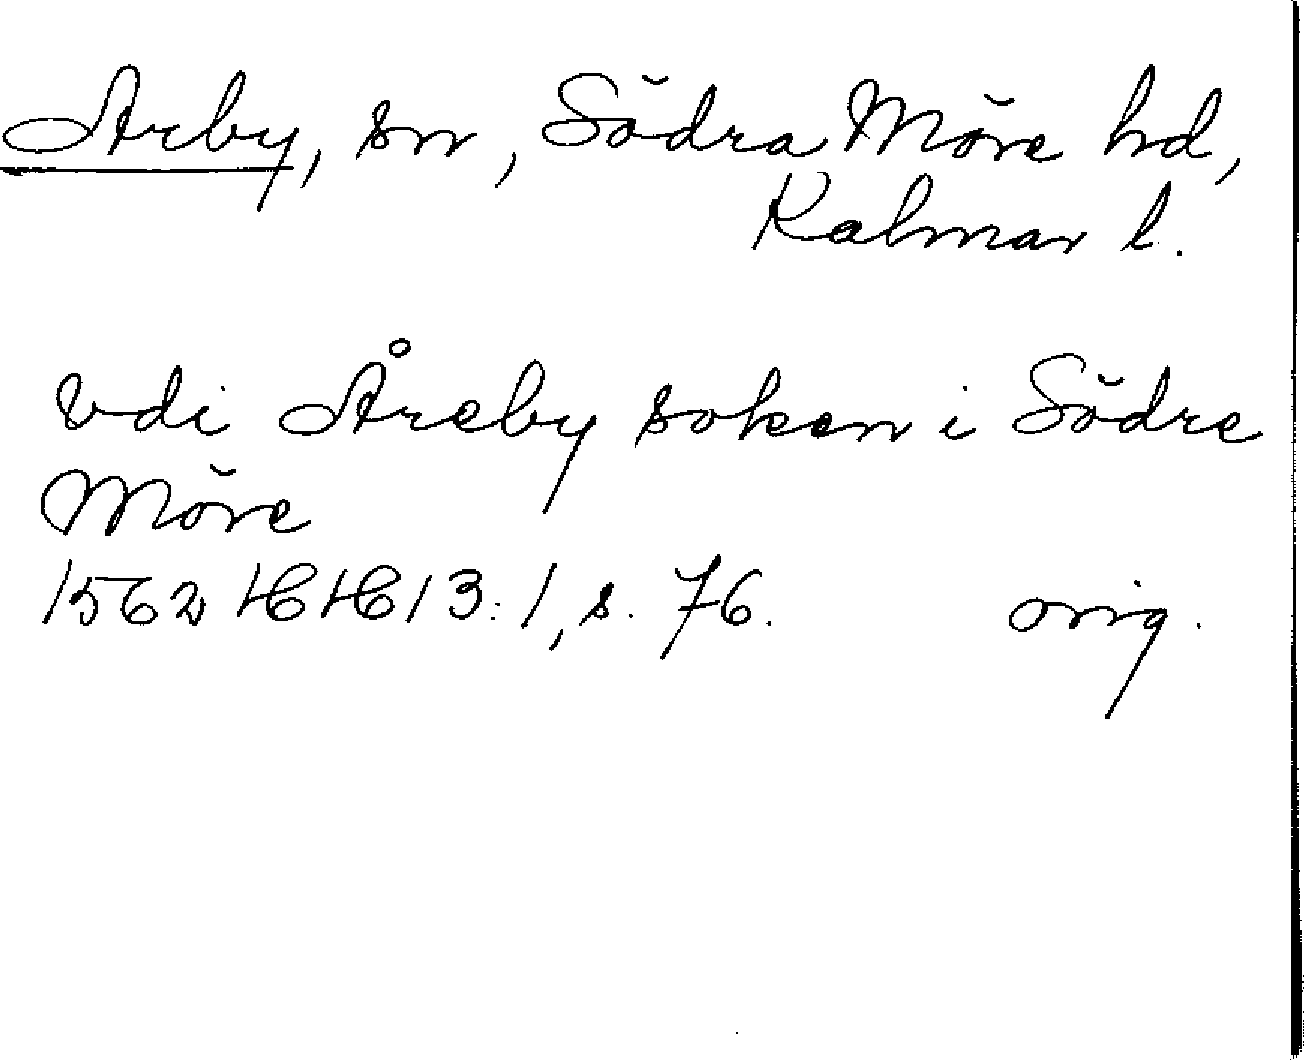 Arby, sn, Södra Möre hd,
Kalmar l.
vdi Åreby soken i Södre
Möre
1562 HH 13:1, s. 76. orig.